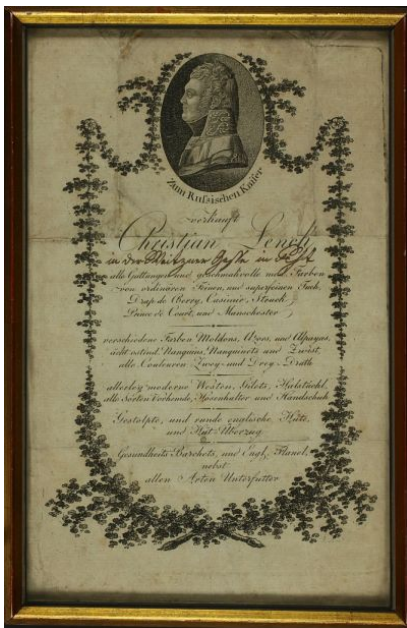 Zum Russischen Kaiser
verkauft
Christian
in der Waitzner
alle Gattungen und geschmakvolle und Farben
von ordinären Feinen, und superfeinen Tuch,
Drap de Casimir,
Prince de Court, und Manschester
verschiedene Farben Moldons, und Alpagas,
ächt ostind. Nanquins, Nanquinets und
alle Couleuren Zwey- und Drey- Drath
allerley moderne Westen, Gilets, Halstüchl,
alle Sorten Hosenhalter und Handschuh
Gestolpte, und runde englische Hüte,
und Hut Überzug
Gesundheits Barchets, und Engl. Flanel,
nebst
allen Arten Unterfutter